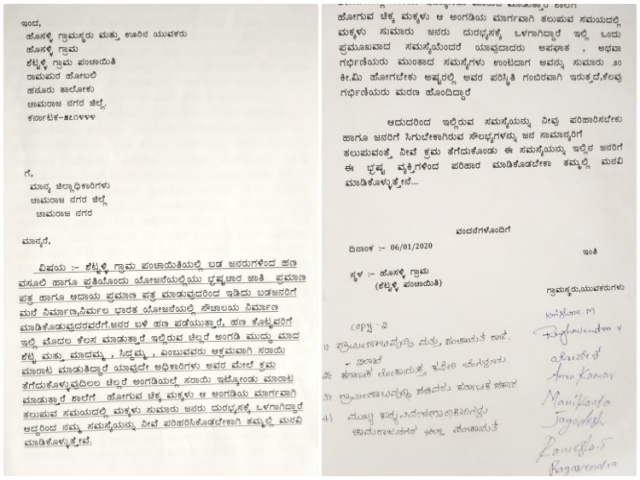 ಇಂದ,
ಹೊಸಳ್ಳಿ ಗ್ರಾಮಸ್ಥರು ಮತ್ತು ಊರಿನ ಯುವಕರು
ಹೊಸಳ್ಳಿ ಗ್ರಾಮ
ಶೆಟ್ಟಳ್ಳಿ ಗ್ರಾಮ ಪಂಚಾಯಿತಿ
ರಾಮಪುರ ಹೋಬಲಿ
ಹನೂರು ತಾಲೋಕು
ಚಾಮರಾಜ ನಗರ ಜಿಲ್ಲೆ.
ಕರ್ನಾಟಕ-೫೭೧೪೪೪
ಗೆ,
ಮಾನ್ಯ ಜಿಲ್ಲಾಧಿಕಾರಿಗಳು
ಚಾಮರಾಜ ನಗರ ಜಿಲ್ಲೆ
ಚಾಮರಾಜ ನಗರ
ಮಾನ್ಯರೆ,
ವಿಷಯ :- ಶೆಟ್ಟಳ್ಳಿ ಗ್ರಾಮ ಪಂಚಾಯಿತಿಯಲ್ಲಿ ಬಡ ಜನರುಗಳಿಂದ ಹಣ
ವಸೂಲಿ ಹಾಗೂ ಪ್ರತಿಯೊಂದು ಯೋಜನೆಯಲ್ಲಿಯು ಭ್ರಷ್ಟಚಾರ ಜಾತಿ ಪ್ರಮಾಣ
ಪತ್ರ ಹಾಗೂ ಆದಾಯ ಪ್ರಮಾಣ ಪತ್ರ ಮಾಡುವುದರಿಂದ ಇಡಿದು ಬಡಜನರಿಗೆ
ಮನೆ ನಿರ್ಮಾಣ,ನಿರ್ಮಲ ಭಾರತ ಯೋಜನೆಯಲ್ಲಿ ಶೌಚಾಲಯ ನಿರ್ಮಾಣ
ಮಾಡಿಕೊಡುವುದರವರೆಗೆ.ಜನರ ಬಳಿ ಹಣ ಪಡೆಯುತ್ತಾರೆ, ಹಣ ಕೊಟ್ಟವರಿಗೆ
ಇಲ್ಲಿ ಮೊದಲ ಕೆಲಸ ಮಾಡುತ್ತಾರೆ ಇಲ್ಲಿರುವ ಚಿಲ್ಲರೆ ಅಂಗಡಿ ಮುದ್ದು ಮಾದ
ಶೆಟ್ಟಿ ಮತ್ತು ಮಾದಮ್ಮ , ಸಿದ್ದಮ್ಮ , ಎಂಬುವವರು ಅಕ್ರಮವಾಗಿ ಸರಾಯಿ
ಮಾರಾಟ ಮಾಡುತಿದ್ದಾರೆ ಯಾವುದೇ ಅಧಿಕಾರಿಗಳು ಅವರ ಮೇಲೆ ಕ್ರಮ
ತೆಗೆದುಕೊಳ್ಳುವುದಿಲಲ ಚಿಲ್ಲರೆ ಅಂಗಡಿಯಲ್ಲೆ ಸರಾಯಿ ಇಟ್ಕೊಂಡು ಮಾರಾಟ
ಮಾಡುತ್ತಾರೆ ಶಾಲೆಗೆ ಹೋಗುವ ಚಿಕ್ಕ ಮಕ್ಕಳು ಆ ಅಂಗಡಿಯ ಮಾರ್ಗವಾಗಿ
ತಲುಪುವ ಸಮಯದಲ್ಲಿ ಮಕ್ಕಳು ಸುಮಾರು ಜನರು ದುರಭ್ಯಸಕ್ಕೆ ಒಳಗಾಗಿದ್ದಾರೆ
ಆದ್ದರಿಂದ ನಮ್ಮ ಸಮಸ್ಯೆಯನ್ನು ನೀವೆ ಪರಿಹರಿಸಿಕೊಡಬೇಕಾಗಿ ತಮ್ಮಲ್ಲಿ ಮನವಿ
ಮಾಡಿಕೊಳ್ಳುತ್ತೇವೆ.
ಹೋಗುವ ಚಿಕ್ಕ ಮಕ್ಕಳು ಆ ಅಂಗಡಿಯ ಮಾರ್ಗವಾಗಿ ತಲುಪುವ ಸಮಯದಲ್ಲಿ
ಮಕ್ಕಳು ಸುಮಾರು ಜನರು ದುರಭ್ಯಸಕ್ಕೆ ಒಳಗಾಗಿದ್ದಾರೆ ಇಲ್ಲಿ ಒಂದು
ಪ್ರಮೂಖವಾದ ಸಮಸ್ಯೆಯೆಂದರೆ ಯಾವುದಾದರು ಅಪಘಾತ , ಅಥವಾ
ಗರ್ಭಿಣಿಯರು ಮುಂತಾದ ಸಮಸ್ಯೆಗಳು ಉಂಟದಾಗ ಅವನ್ನು ಸುಮಾರು ೨೦
ಕೀ.ಮಿ ಹೋಗಬೇಕು ಅಷ್ಟರಲ್ಲಿ ಅವರ ಪರಿಸ್ಥಿತಿ ಗಂಬಿರವಾಗಿ ಇರುತ್ತದೆ,ಕೆಲವು
ಗರ್ಭಿಣಿಯರು ಮರಣ ಹೊಂದಿದ್ದಾರೆ
ಆದುದರಿಂದ ಇಲ್ಲಿರುವ ಸಮಸ್ಯೆಯನ್ನು ನೀವು ಪರಿಹಾರಿಸಬೇಕು
ಹಾಗೂ ಜನರಿಗೆ ಸಿಗುಬೇಕಾಗಿರುವ ಸೌಲಭ್ಯಗಳನ್ನು ಜನ ಸಾಮಾನ್ಯರಿಗೆ
ತಲುಪುವಂತ್ತೆ ನೀವೆ ಕ್ರಮ ತೆಗೆದುಕೊಂಡು ಈ ಸಮಸ್ಯೆಯನ್ನು ಇಲ್ಲಿನ ಜನರಿಗೆ
ಈ ಭ್ರಷ್ಟ ವ್ಯಕ್ತಿಗಳಿಂದ ಪರಿಹಾರ ಮಾಡಿಕೊಡಬೇಕಾ ತಮ್ಮಲ್ಲಿ ಮನವಿ
ಮಾಡಿಕೊಳ್ಳುತ್ತೇನೆ...
ವಂದನೆಗಳೊಂದಿಗೆ
ದಿನಾಂಕ :- 06/01/2020
ಇಂತಿ
ಸ್ಥಳ :- ಹೊಸಳ್ಳಿ ಗ್ರಾಮ
(ಶೆಟ್ಟಳ್ಳಿ ಪಂಚಾಯಿತಿ)
ಗ್ರಾಮಸ್ಥರು,ಯುವಕರುಗಳು
copy - 2
Krishna.M
Raghavendra.V
Arun Kumar
Manikanta
Jagadesh
Ragavendra